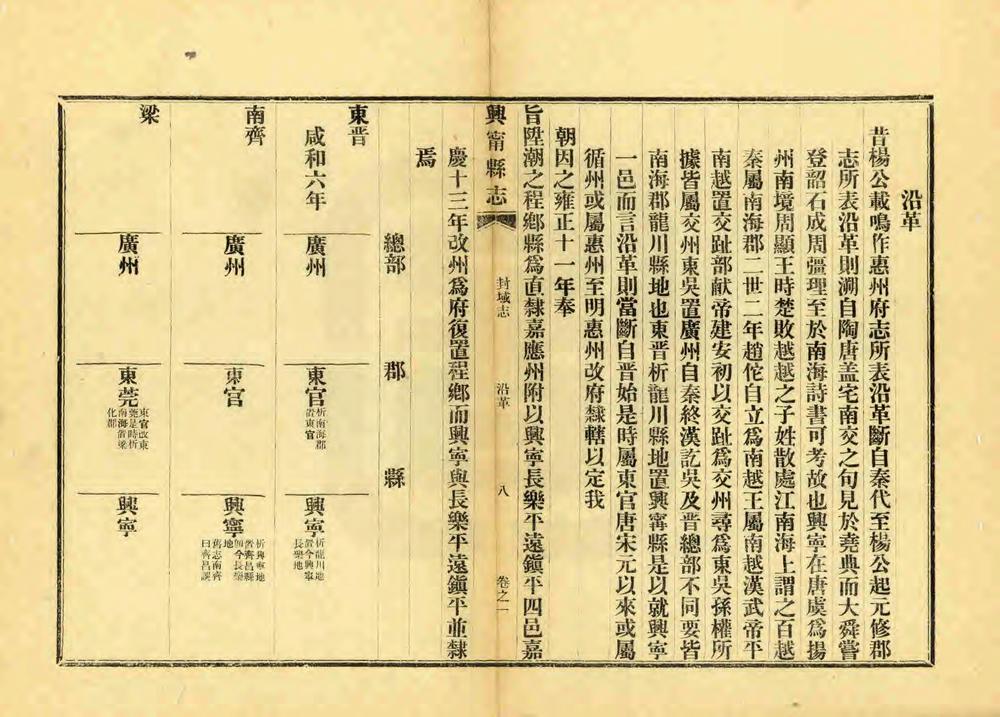 沿革
昔楊公載鳴作惠州府志所表沿革斷自秦代至楊公起元修郡
志所表沿革則溯自陶唐蓋宅南交之句見於堯典而大舜嘗
登韶石成周疆理至於南海詩書可考故也興寧在唐虞爲揚
州南境周顯王時楚敗越越之子姓散處江南海上謂之百越
秦屬南海郡二世二年趙佗自立爲南越王屬南越漢武帝平
南越置交趾部献帝建安初以交趾爲交州尋爲東吳孫權所
據皆屬交州東吳置廣州自秦終漢訖吳及晋總部不同要皆
南海郡龍川縣地也東晋析龍川縣地置興甯縣是以就興寧
一邑而言沿革則當斷自晋始是時屬東官唐宋元以來或屬
循州或屬惠州至明惠州改府隸轄以定我
朝因之雍正十一年奉
旨陞潮之程鄉縣爲直隸嘉應州附以興寧長樂平遠鎭平四邑嘉
興甯縣志 封域志 沿革 八 卷之一
慶十三年改州爲府復置程鄉而興寧與長樂平遠鎭平並隸
焉
總部 郡 縣
東晋
咸和六年 廣州 東官 析南海郡置東官 興寧 析龍川地置今興寧長樂地
南齊 廣州 東官 興寧 析興寧地置齊昌縣即今長樂地舊志南齊曰齊昌誤
梁 廣州 東莞 東官改東莞是時析南海置梁化郡 興寧